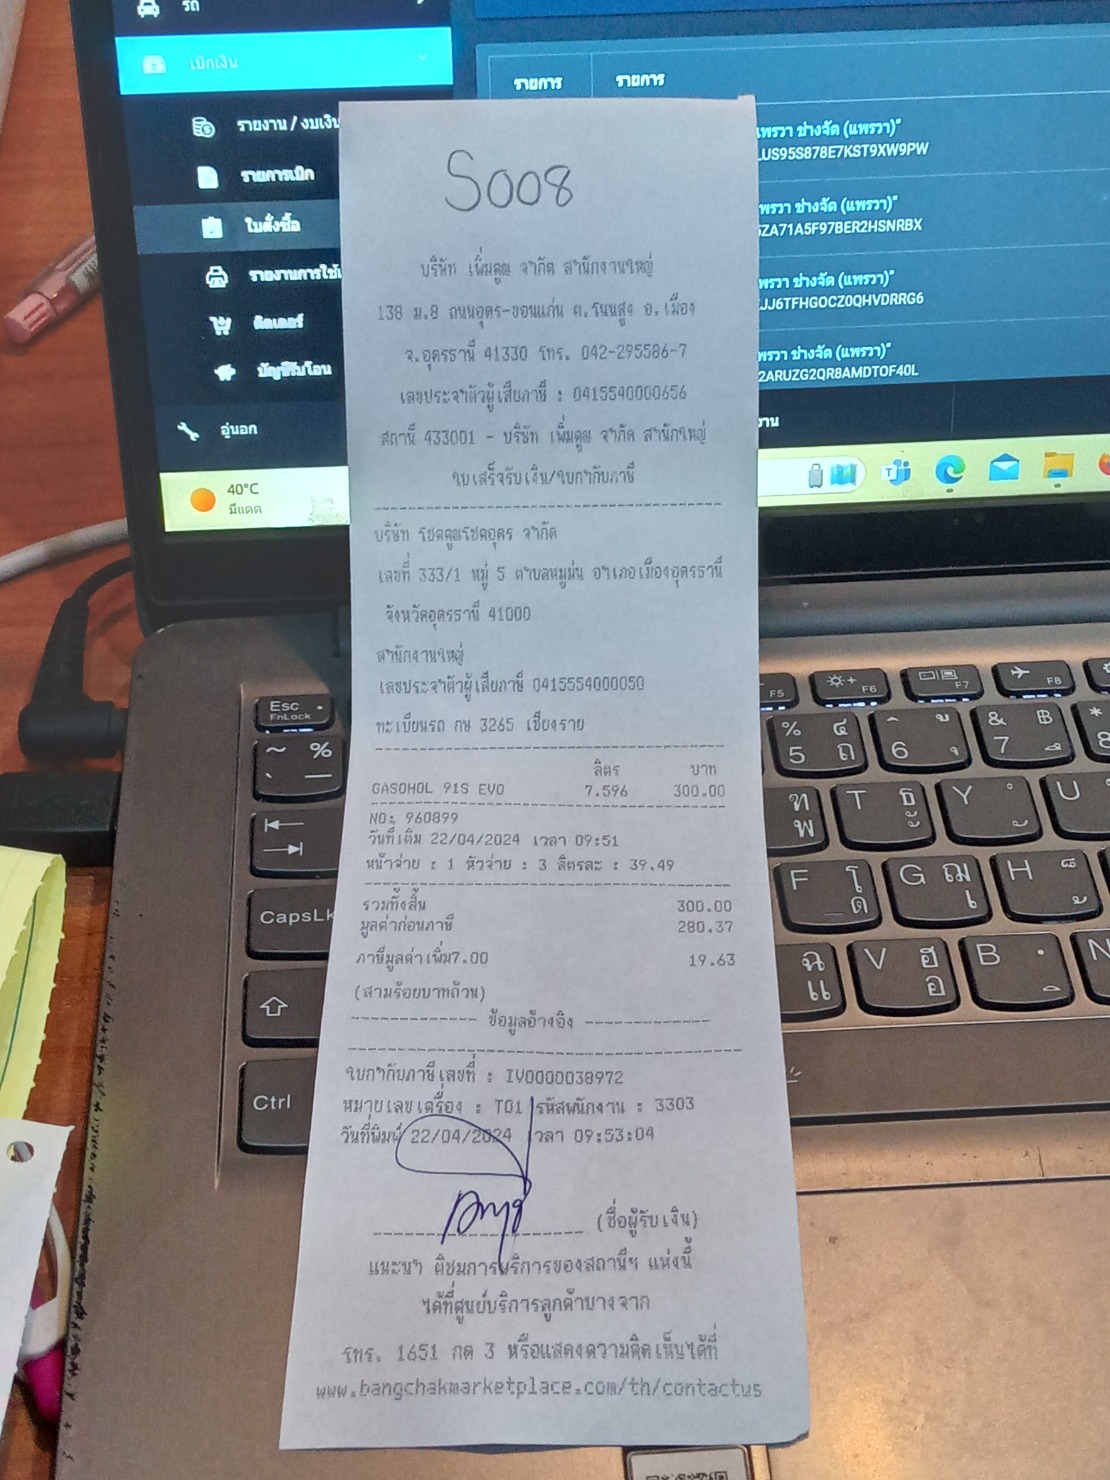 รถ
เบิกเงิน
รายงาน / งบเงิน
รายการเบิก
ใบสั่งซื้อ
รายงานการใช้
ติดเตอร์
บัญชีรับโอน
อู่นอก
40°C
มีแดด
รายการ
รายการ
แพรวา ช่างจัด (แพรวา)"
LUS95S878E7KST9XW9PW
พรวา ช่างจัด (แพรวา)"
5ZA71A5F97BER2HSNRBX
พรวา ช่างจัด (แพรวา)"
JJ6TFHGOCZ0QHVDRRG6
พรวา ช่างจัด (แพรวา)"
2ARUZG2QR8AMDTOF40L
งาน
S008
บริษัท เพิ่มคูณ จำกัด สำนักงานใหญ่
138 ม.8 ถนนอุดร-ขอนแก่น ต.โนนสูง อ.เมือง
จ.อุดรธานี 41330 โทร. 042-295586-7
เลขประจำตัวผู้เสียภาษี : 0415540000656
สถานี 433001 - บริษัท เพิ่มคูณ จำกัด สำนักใหญ่
ใบเสร็จรับเงิน/ใบกำกับภาษี
บริษัท โชคคูณโชคอุดร จำกัด
เลขที่ 333/1 หมู่ 5 ตำบลหมูม่น อำเภอเมืองอุดรธานี
จังหวัดอุดรธานี 41000
สำนักงานใหญ่
เลขประจำตัวผู้เสียภาษี 0415554000050
ทะเบียนรถ กษ 3265 เชียงราย
ลิตร บาท
GASOHOL 91S EVO 7.596 300.00
NO: 960899
วันที่เติม 22/04/2024 เวลา 09:51
หน้าจ่าย : 1 หัวจ่าย : 3 ลิตรละ : 39.49
รวมทั้งสิ้น 300.00
มูลค่าก่อนภาษี 280.37
ภาษีมูลค่าเพิ่ม7.00 19.63
(สามร้อยบาทถ้วน)
------------ ข้อมูลอ้างอิง ------------
ใบกำกับภาษีเลขที่ : IV0000038972
หมายเลขเครื่อง : T01 รหัสพนักงาน : 3303
วันที่พิมพ์ 22/04/2024 เวลา 09:53:04
(ชื่อผู้รับเงิน)
แนะนำ ติชมการบริการของสถานีฯ แห่งนี้
ได้ที่ศูนย์บริการลูกค้าบางจาก
โทร. 1651 กด 3 หรือแสดงความคิดเห็นได้ที่
www.bangchakmarketplace.com/th/contactus
Esc
FnLock
F5
F6
F7
F8
~ %
% ๔
5 ถ
6
& ฿
7
*
8
ฑ
พ
T ธ
Y
U
CapsLk
F โ
ด
G ฌ
เ
H
ฉ
แ
V ฮ
อ
B
N
Ctrl